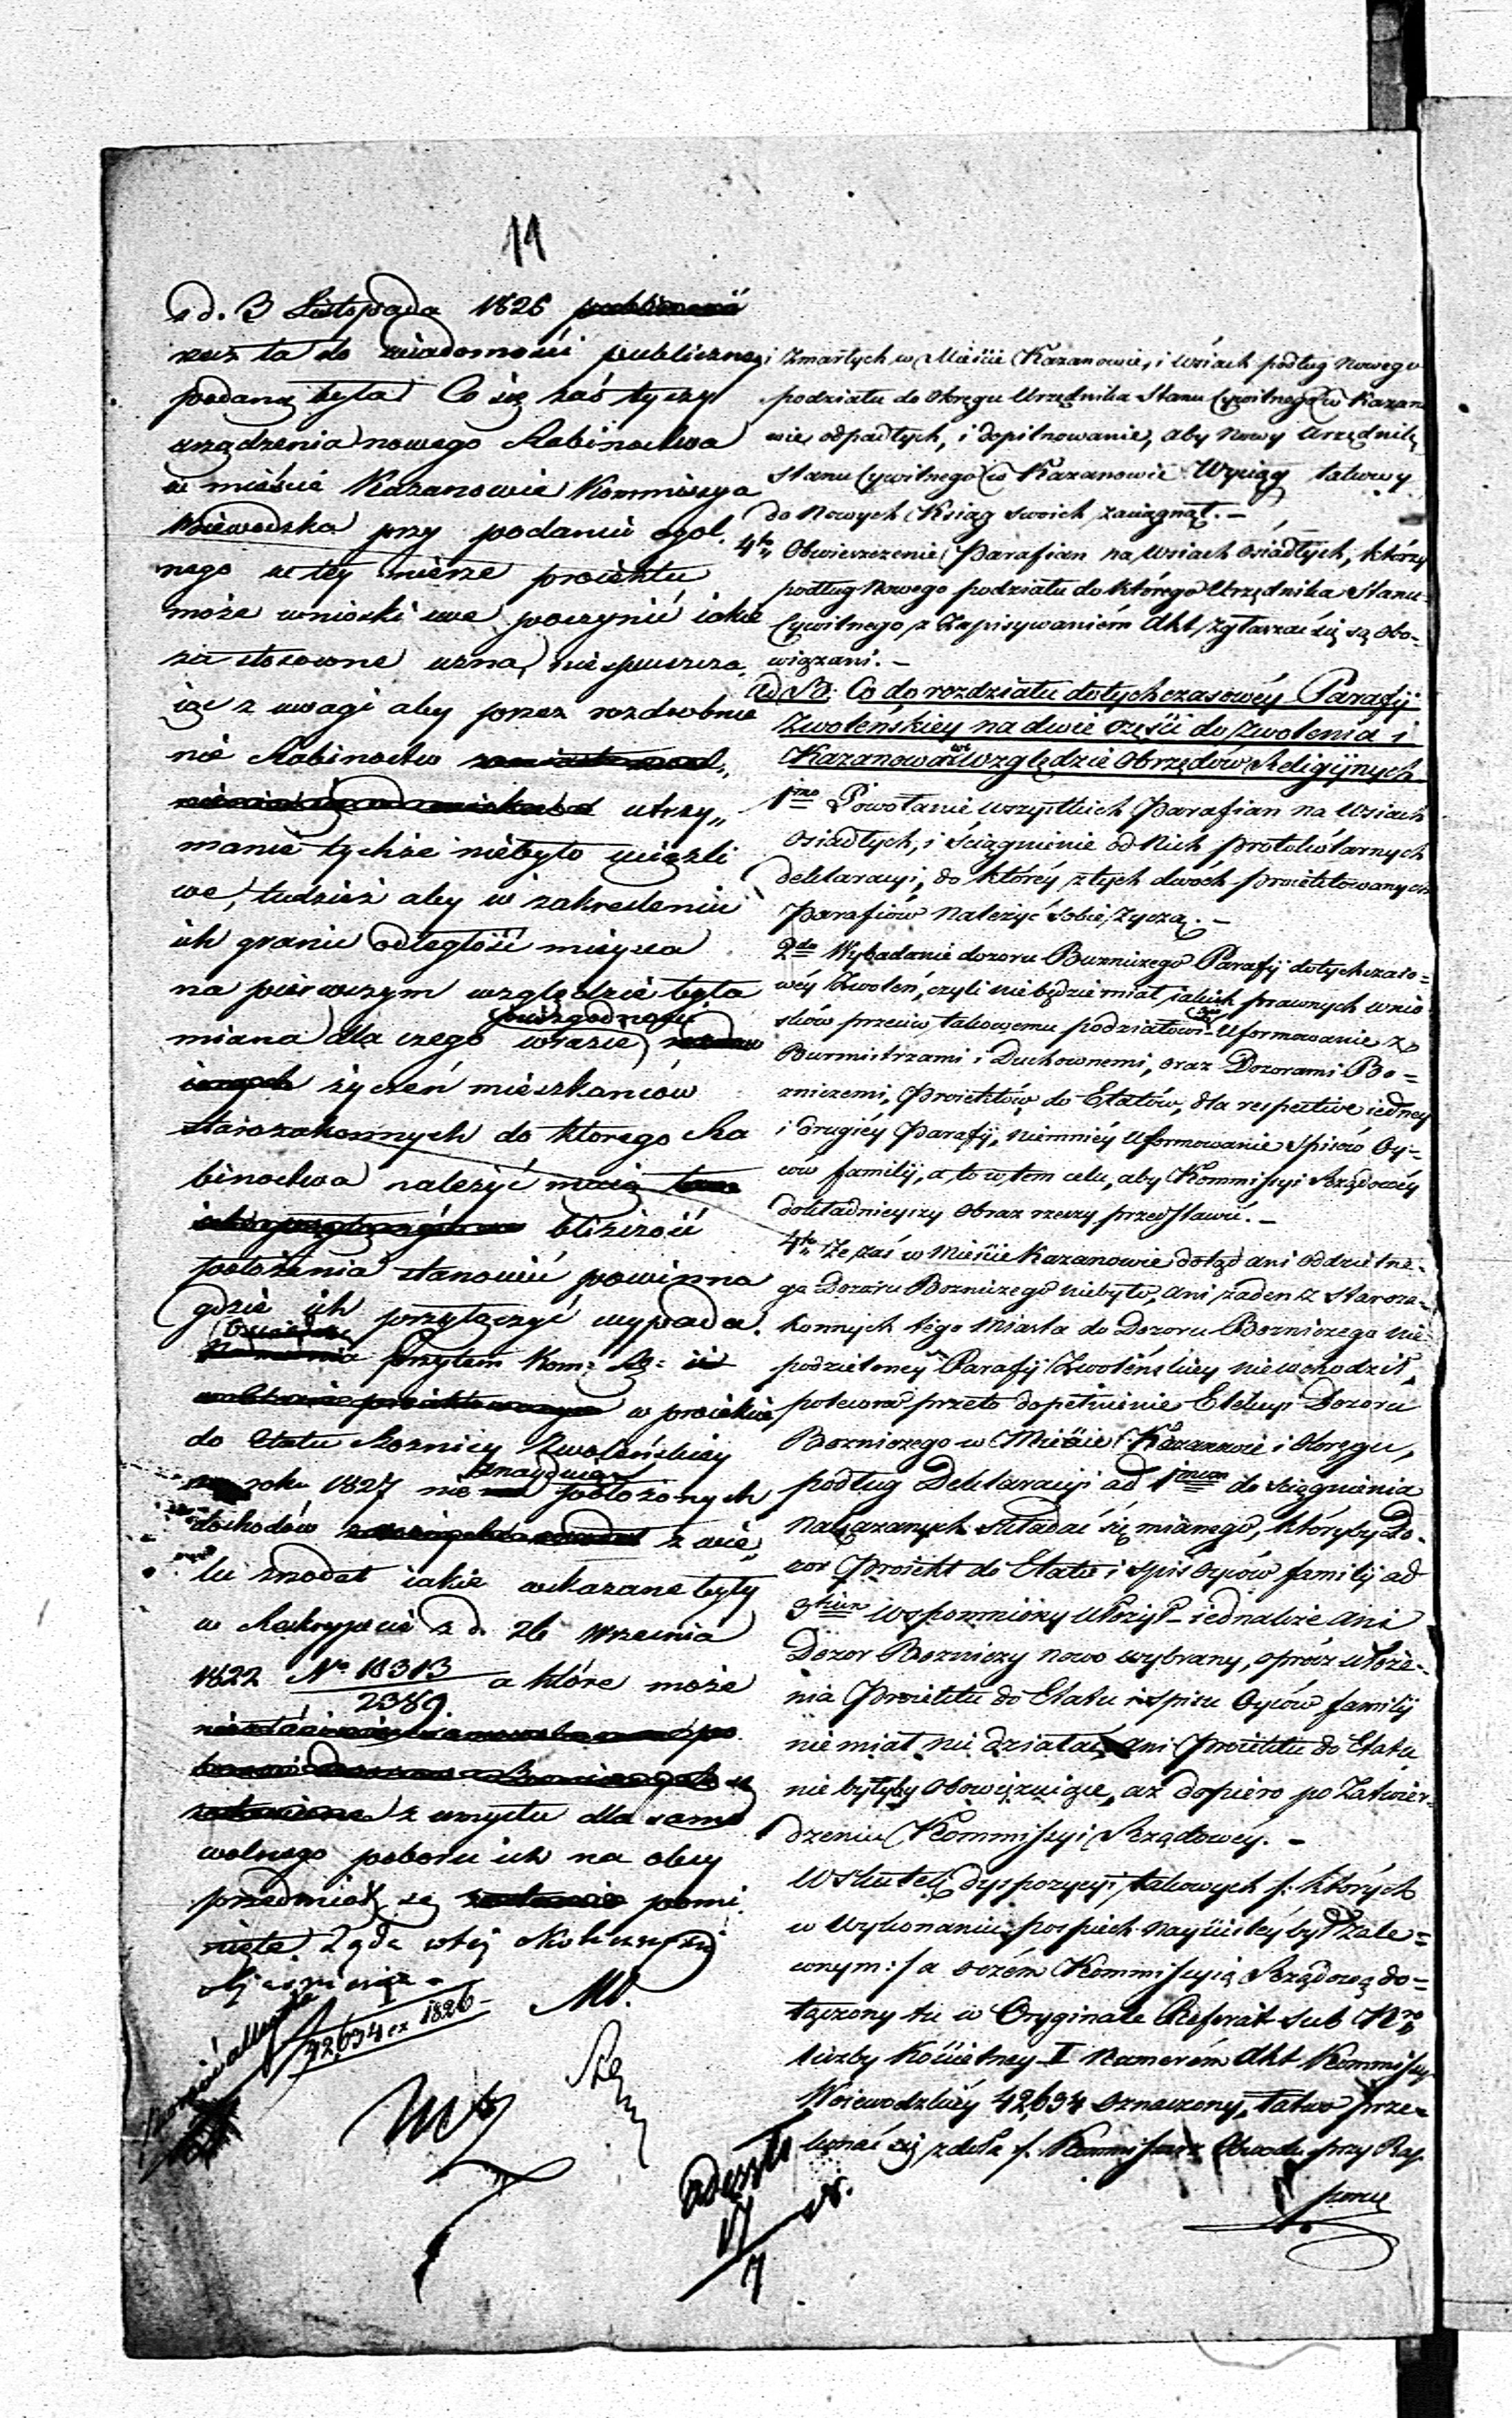 11
z d. 3 Listopada 1826
raz ta do wiadomości publiczney
podaną była Co się zaś tyczy
urządzenia nowego Rabinostwa
w mieście Kazanowie Kommissya
Woiewodzka przy podaniu ogol.
nego w tey mierze proiektu
może wnioski swe poczynić iakie
za stosowne uzna, niespuszcza
iąc z uwagi aby przez rozdrobnie
nie Rabinostw utrzy„
manie tychże niebyło uciążli
we, tudzież aby w zakreśleniu
ich granic odległość mieysca
na pierwszym względzie była
miana dla czego w razie
życzeń mieszkańców
starozakonnych do ktorego Ra
binostwa należyć maią
bliskość
położenia stanowić powinna
gdzie ich przyłączyć wypada.
Przytem Kom: Rz:
w proiekcie
do Etatu Bożnicy Zwoleńskiey
roku 1827 nie znayduiąc położonych
dochodów z wie„
lu źrodeł iakie wskazane były
w Reskrypcie z d. 26 Września
1822 No 10313/2389. a które może
z umysłu dla samo
wolnego poboru ich na obcy
przedmiot są pomi
nięte. Żąda w tej okoliczności
obiaśnienia.
42,694 ex 1826
i Zmarłych w Mieście Kazanowie, i Wsiach podług Nowego
podziału do Okręgu Urzędnika Stanu Cywilnego w Kazano
wie odpadłych, i dopilnowanie, aby Nowy Urzędnik
Stanu Cywilnego w Kazanowie Wyciąg takowy
do Nowych Ksiąg swoich zaciągnął. —
4to Obwieszczenie Parafian na Wsiach Osiadłych, którzy
podług Nowego podziału do którego Urzędnika Stanu
Cywilnego z Zapisywaniem Akt, zgłaszać się są obo-
wiązani. —
Co do rozdziału dotychczasowéy Parafij
Zwoleńskiey na dwie części do Zwolenia i
Kazanowa we Względzie Obrzędów Religijnych
1mo Powołanie Wszystkich Parafian na Wsiach
Osiadłych, i ściągnienie od Nich protokólarnych
deklaracyi, do któréy z tych dwóch proiektowanych
Parafiów Należyć sobie życzą. —
2do Wybadanie dozoru Bożniczego Parafij dotychczaso-
wéy Zwoleń, czyli nie będzie miał iakich prawnych wnio
sków przeciw takowemu podziałowi — Uformowanie z
Burmistrzami i Duchownemi, oraz Dozorami Bo-
zniczemi, Proiektów do Etatów, dla respective iedney
i drugiéy Parafij, niemniéy Uformowanie Spisów Oy-
ców familij, a to w tem celu, aby Kommissyi Rządowéy
dokładnieyszy Obraz rzeczy przedstawić. —
4to Że zaś w Mieście Kazanowie dotąd ani Oddzielne-
go Dozoru Bożniczego niebyło, ani żaden z Staroza-
konnych tego Miasta do Dozoru Bożniczego nie
podzieloney Parafij Zwoleńskiey niewchodził,
polecono przeto dopełnienie Elekcyi Dozoru
Bożniczego w Mieście Kazanowie i Okręgu,
podług Deklaracyi ad 1mum do ściągnienia
Nakazanych składać się mianego, któryby Do-
zor Proiekt do Etatu i spis Oyców familij ad
3tium wspomniony ułożył — iednakże ani
Dozor Bożniczy nowo wybrany, oprócz ułoże-
nia Proiektu do Etatu i spisu Oyców familij
nie miał nic działać, ani Proiektu do Etatu
nie byłyby Obowięzuiące, aż dopiero po Zatwier-
dzeniu Kommissyi Rządowéy. —
W skutek dyspozycyi takowych /: których
w Wykonaniu pospiech nayściśley był Zale-
conym :/ a oczém Kommissyią Rządową do-
łączony tu w Oryginale Referat sub Nro
liczby Kościelney I Numerém Akt Kommissyi
Woiewodzkiéy 42,694 oznaczony, łatwo prze-
konać się zdoła /. Kommissarz Obwodu przy Rap
porcie